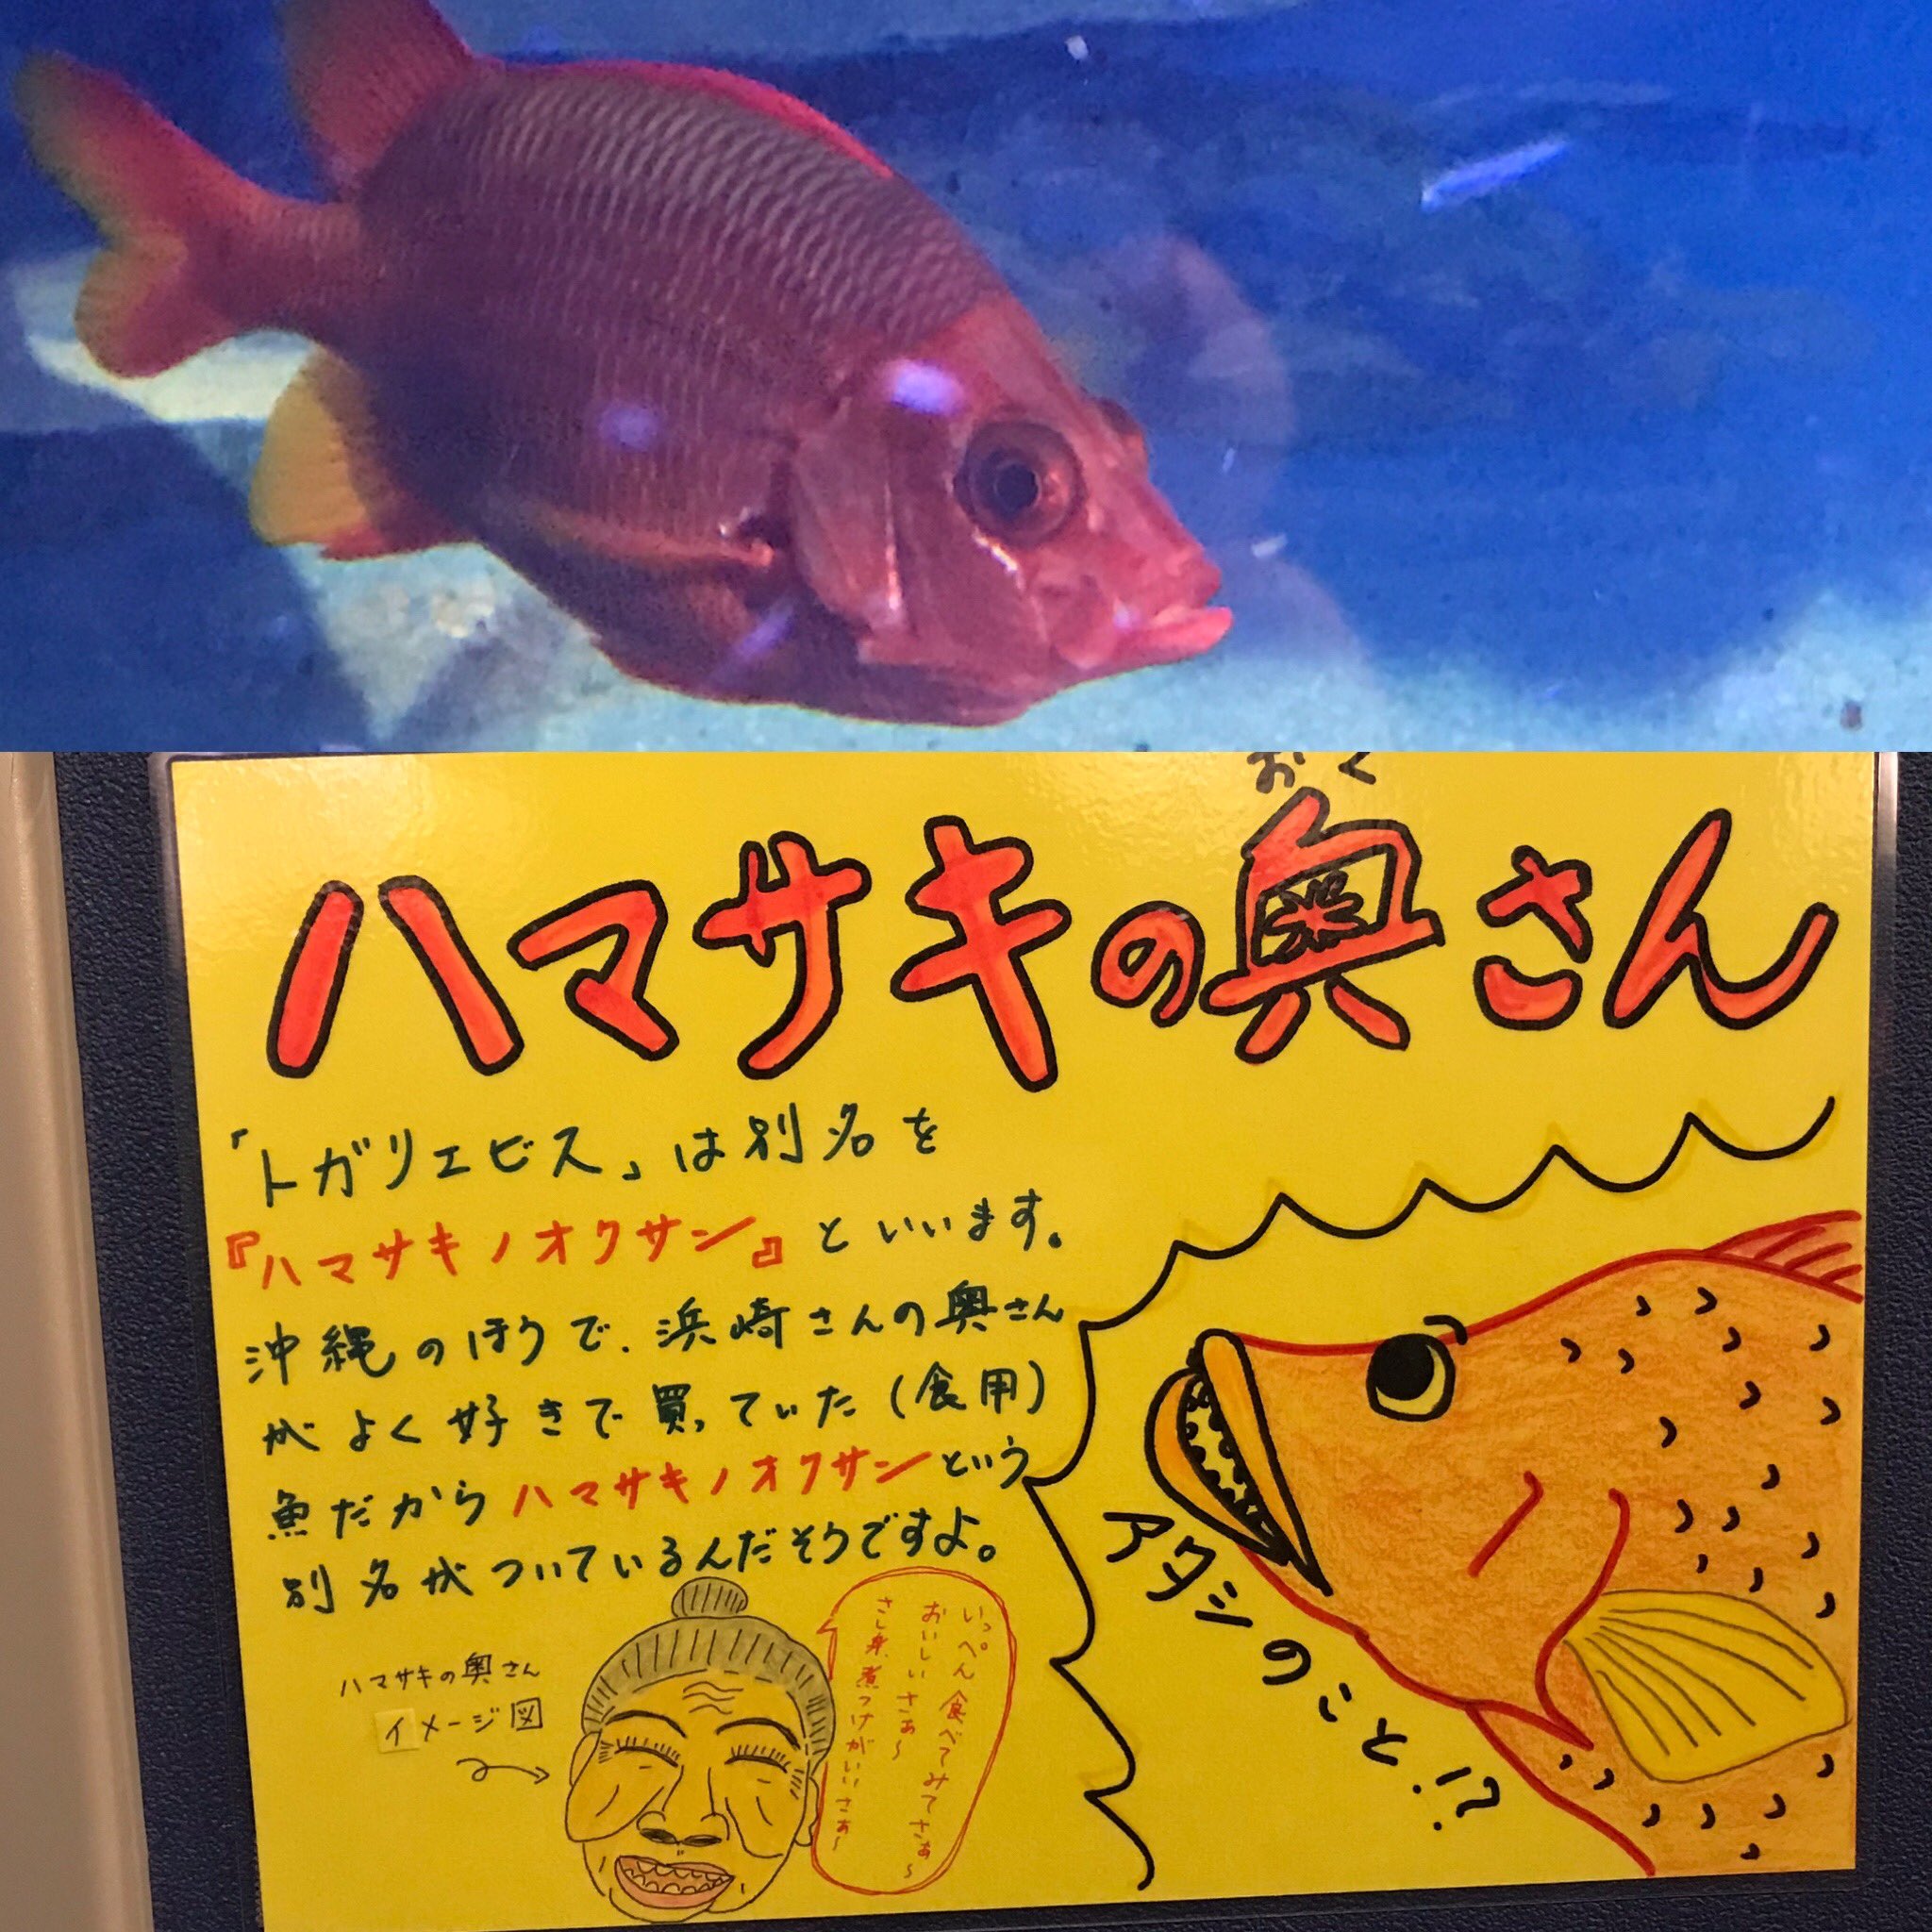 おく
ハマサキの奥さん
「トガリエビス」は別名を
『ハマサキノオクサン』といいます。
沖縄のほうで、浜崎さんの奥さん
がよく好きで買っていた(食用)
魚だからハマサキノオクサンという
別名がついているんだそうですよ。
アタシのこと!?
ハマサキの奥さん
イメージ図
いっぺん食べてみてさぁ〜
おいしいさぁ〜
さし身、煮つけがいいさぁ〜